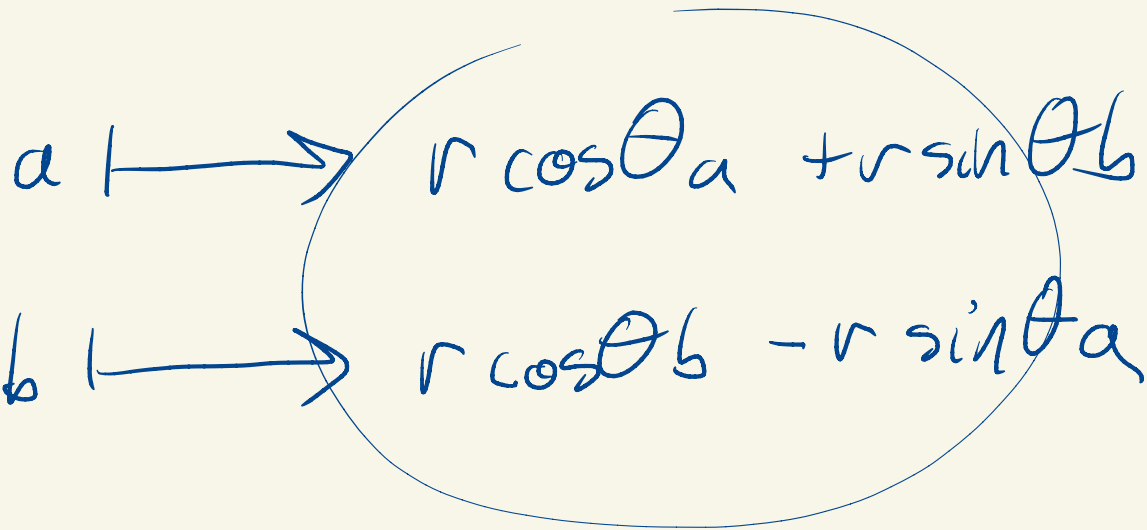 a ↦ r cosθa + r sinθb
b ↦ r cosθb − r sinθa